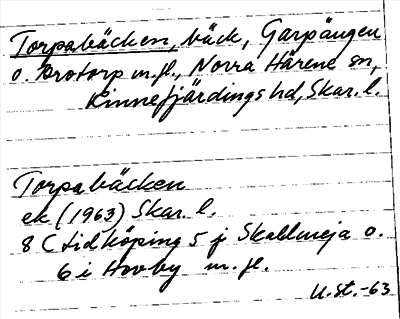 Torpabäcken, bäck, Garpängen
o. Brotorp m.fl., Norra Härene sn,
Kinnefjärdings hd, Skar. l.
Torpabäcken
ek (1963) Skar. l.
8 C Lidköping 5 j Skallmeja o.
6 i Hovby m.fl.
U.St.-63